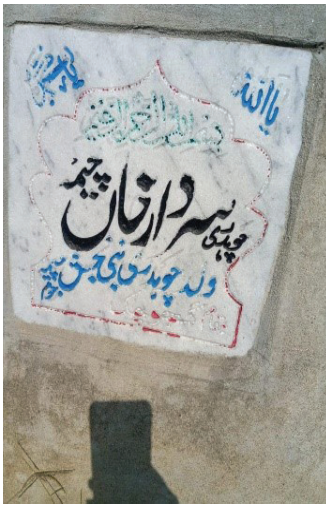 یا اللہ
بسم اللہ الرحمن الرحیم
چوہدری سردار خاں چیمہ
ولد چوہدری نبی بخش چیمہ